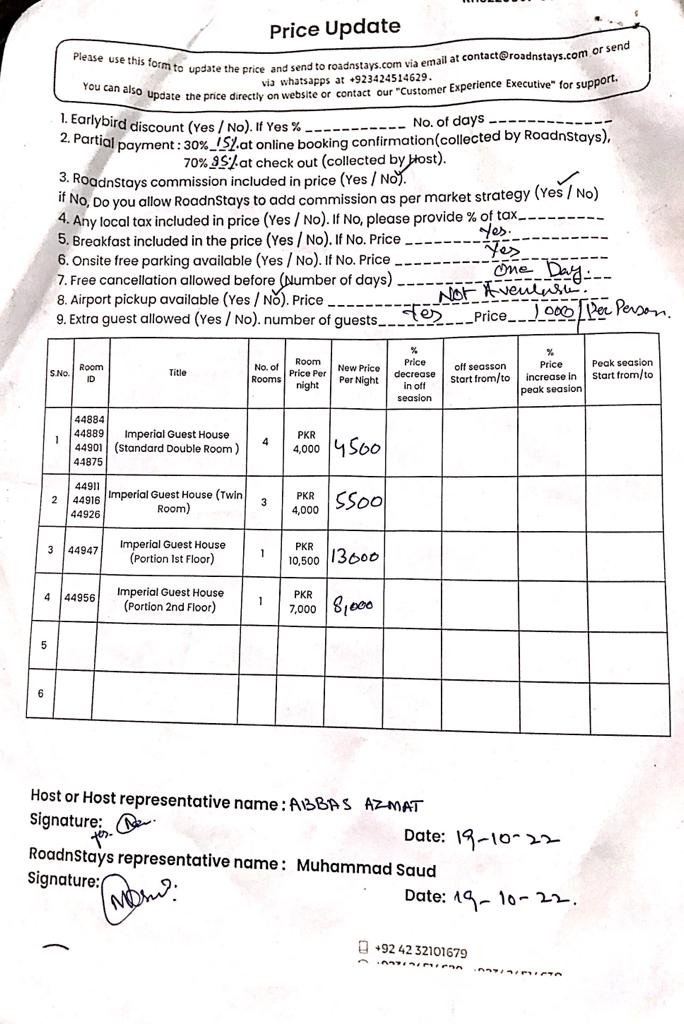 Price Update
Please use this form to update the price and send to roadnstays.com via email at contact@roadnstays.com or send
via whatsapps at +923424514629.
You can also update the price directly on website or contact our "Customer Experience Executive" for support.
1. Earlybird discount (Yes / No). If Yes % __________ No. of days __________
2. Partial payment : 30% 15% at online booking confirmation(collected by RoadnStays),
70% 85% at check out (collected by Host).
3. RoadnStays commission included in price (Yes / No). ✓
if No, Do you allow RoadnStays to add commission as per market strategy (Yes / No) ✓
4. Any local tax included in price (Yes / No). If No, please provide % of tax__________
5. Breakfast included in the price (Yes / No). If No. Price __________ Yes.
6. Onsite free parking available (Yes / No). If No. Price __________ Yes
7. Free cancellation allowed before (Number of days) __________ One Day.
8. Airport pickup available (Yes / No). ✓ Price __________ Not
9. Extra guest allowed (Yes / No). number of guests__ Yes __Price__ 1000/Per Person.
S.No. Room ID Title No. of Rooms Room Price Per night New Price Per Night % Price decrease in off seasion off seasson Start from/to % Price increase in peak seasion Peak seasion Start from/to
1 44884 44889 44901 44875 Imperial Guest House (Standard Double Room ) 4 PKR 4,000 4500
2 44911 44916 44926 Imperial Guest House (Twin Room) 3 PKR 4,000 5500
3 44947 Imperial Guest House (Portion 1st Floor) 1 PKR 10,500 13000
4 44956 Imperial Guest House (Portion 2nd Floor) 1 PKR 7,000 8,000
5
6
Host or Host representative name : ABBAS AZMAT
Signature:
Date: 19-10-22
RoadnStays representative name : Muhammad Saud
Signature:
Date: 19-10-22.
+92 42 32101679